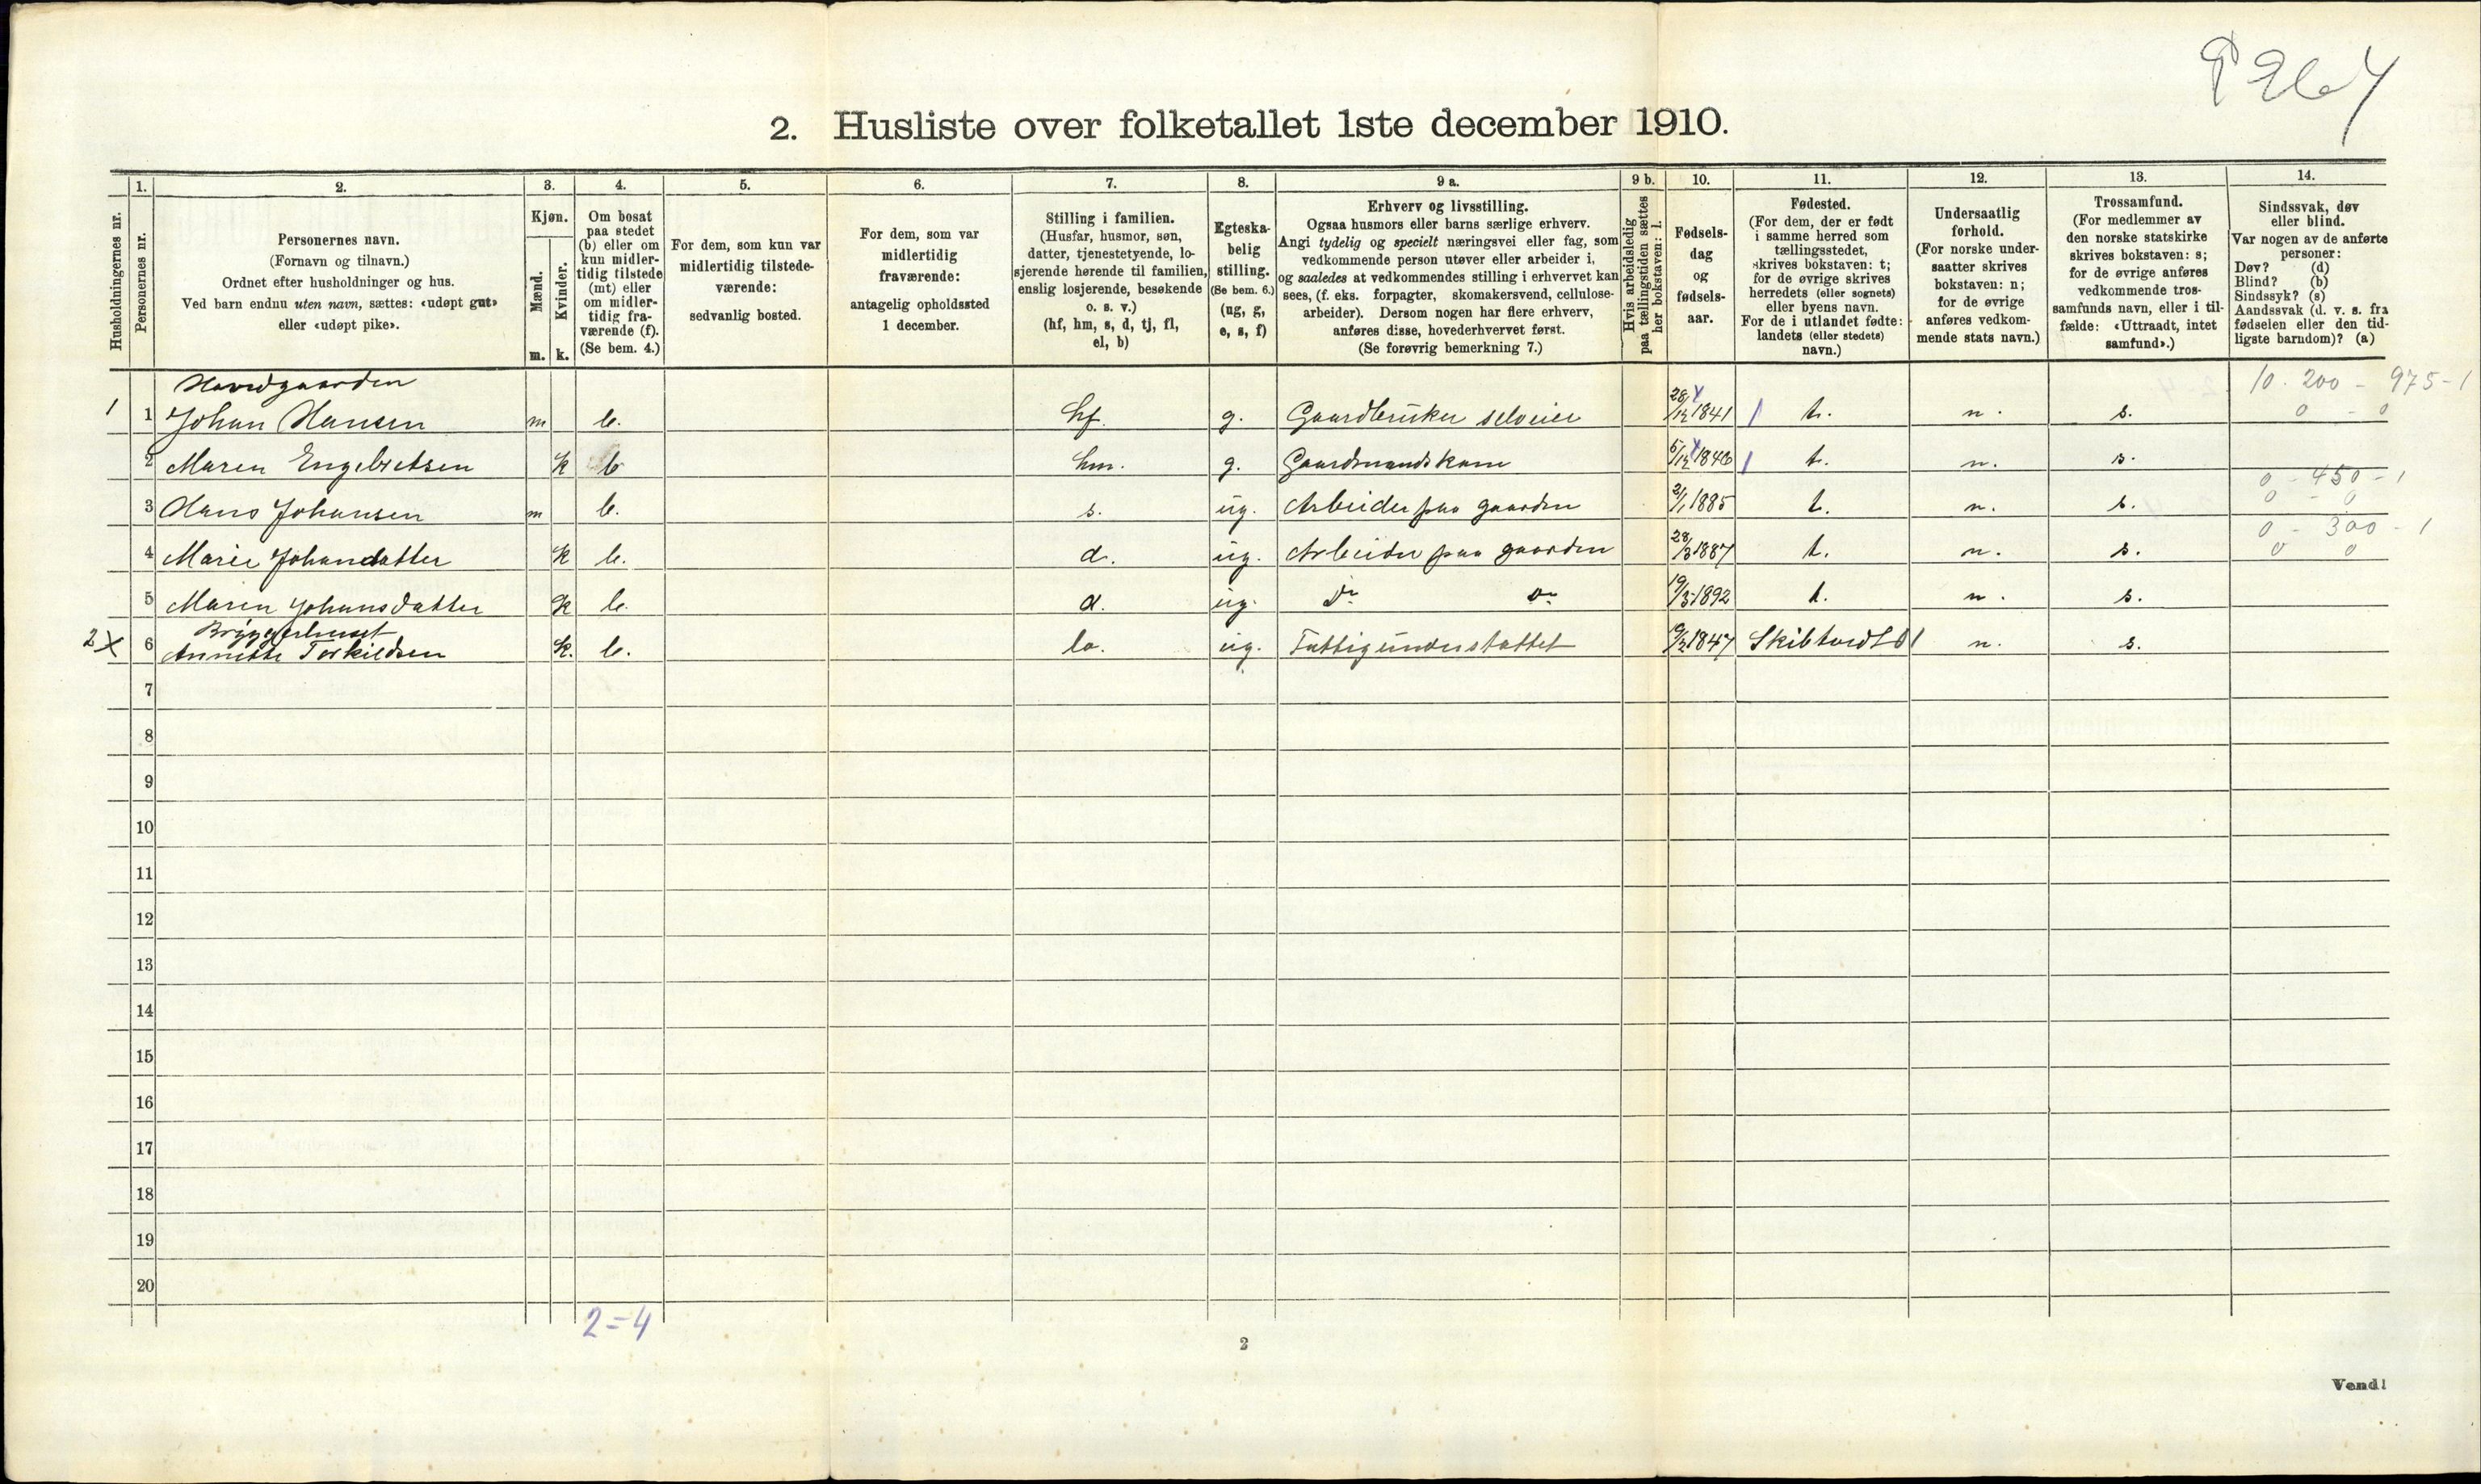 2. Husliste over folketallet 1ste december 1910.
Husholdningernes nr.
1. Personernes nr.
2. Personernes navn.
(Fornavn og tilnavn.)
Ordnet efter husholdninger og hus.
Ved barn endnu uten navn, sættes: «udøpt gut»
eller «udøpt pike».
3. Kjøn.
Mænd. m.
Kvinder. k.
4. Om bosat
paa stedet
(b) eller om
kun midler-
tidig tilstede
(mt) eller
om midler-
tidig fra-
værende (f).
(Se bem. 4.)
5. For dem, som kun var
midlertidig tilstede-
værende:
sedvanlig bosted.
6. For dem, som var
midlertidig
fraværende:
antagelig opholdssted
1 december.
7. Stilling i familien.
(Husfar, husmor, søn,
datter, tjenestetyende, lo-
sjerende hørende til familien,
enslig losjerende, besøkende
o. s. v.)
(hf, hm, s, d, tj, fl,
el, b)
8. Egteska-
belig
stilling.
(Se bem. 6.)
(ug, g,
e, s, f)
9 a. Erhverv og livsstilling.
Ogsaa husmors eller barns særlige erhverv.
Angi tydelig og specielt næringsvei eller fag, som
vedkommende person utøver eller arbeider i,
og saaledes at vedkommendes stilling i erhvervet kan
sees, (f. eks. forpagter, skomakersvend, cellulose-
arbeider). Dersom nogen har flere erhverv,
anføres disse, hovederhvervet først.
(Se forøvrig bemerkning 7.)
9 b. Hvis arbeidsledig
paa tællingstiden sættes
her bokstaven: l.
10. Fødsels-
dag
og
fødsels-
aar.
11. Fødested.
(For dem, der er født
i samme herred som
tællingsstedet,
skrives bokstaven: t;
for de øvrige skrives
herredets (eller sognets)
eller byens navn.
For de i utlandet fødte:
landets (eller stedets)
navn.)
12. Undersaatlig
forhold.
(For norske under-
saatter skrives
bokstaven: n;
for de øvrige
anføres vedkom-
mende stats navn.)
13. Trossamfund.
(For medlemmer av
den norske statskirke
skrives bokstaven: s;
for de øvrige anføres
vedkommende tros-
samfunds navn, eller i til-
fælde: «Uttraadt, intet
samfund».)
14. Sindssvak, døv
eller blind.
Var nogen av de anførte
personer:
Døv? (d)
Blind? (b)
Sindssyk? (s)
Aandssvak (d. v. s. fra
fødselen eller den tid-
ligste barndom)? (a)
Hovedgaarden 10. 200 - 975 - 1
1 1 Johan Hansen m b. hf. g. Gaardbruker selveier 28/12 1841 t. n. s. 0 - 0
2 Maren Engebretsen k b hm. g. Gaardmandskone 5/12 1840 t. n. s.
0 - 450 - 1
3 Hans Johansen m b. s. ug. Arbeider paa gaarden 2/1 1885 t. n. s. 0 - 0
0 - 300 - 1
4 Marie Johansdatter k b. d. ug. Arbeider paa gaarden 28/3 1887 t. n. s. 0 0
5 Maren Johansdatter k b. d. ug. Do Do 19/3 1892 t. n. s.
Bryggerhuset
2 X 6 Annette Torkildsen k. b. lo. ug. Fattigunderstøttet 1847 n. s.
7
8
9
10
11
12
13
14
15
16
17
18
19
20
2=4
2
Vend!